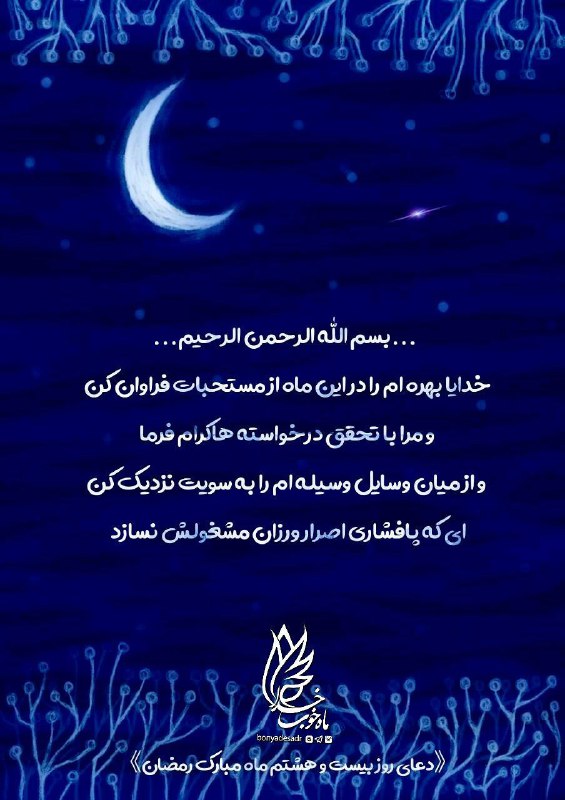 ...بسم الله الرحمن الرحیم...
خدایا بهره ام را در این ماه از مستحبات فراوان کن
و مرا با تحقق درخواسته ها کرام فرما
و از میان وسایل وسیله ام را به سویت نزدیک کن
ای که پافشاری اصرار ورزان مشغولش نسازد
ماه خوب خدا
bonyadesadr
《دعای روز بیست و هشتم ماه مبارک رمضان》